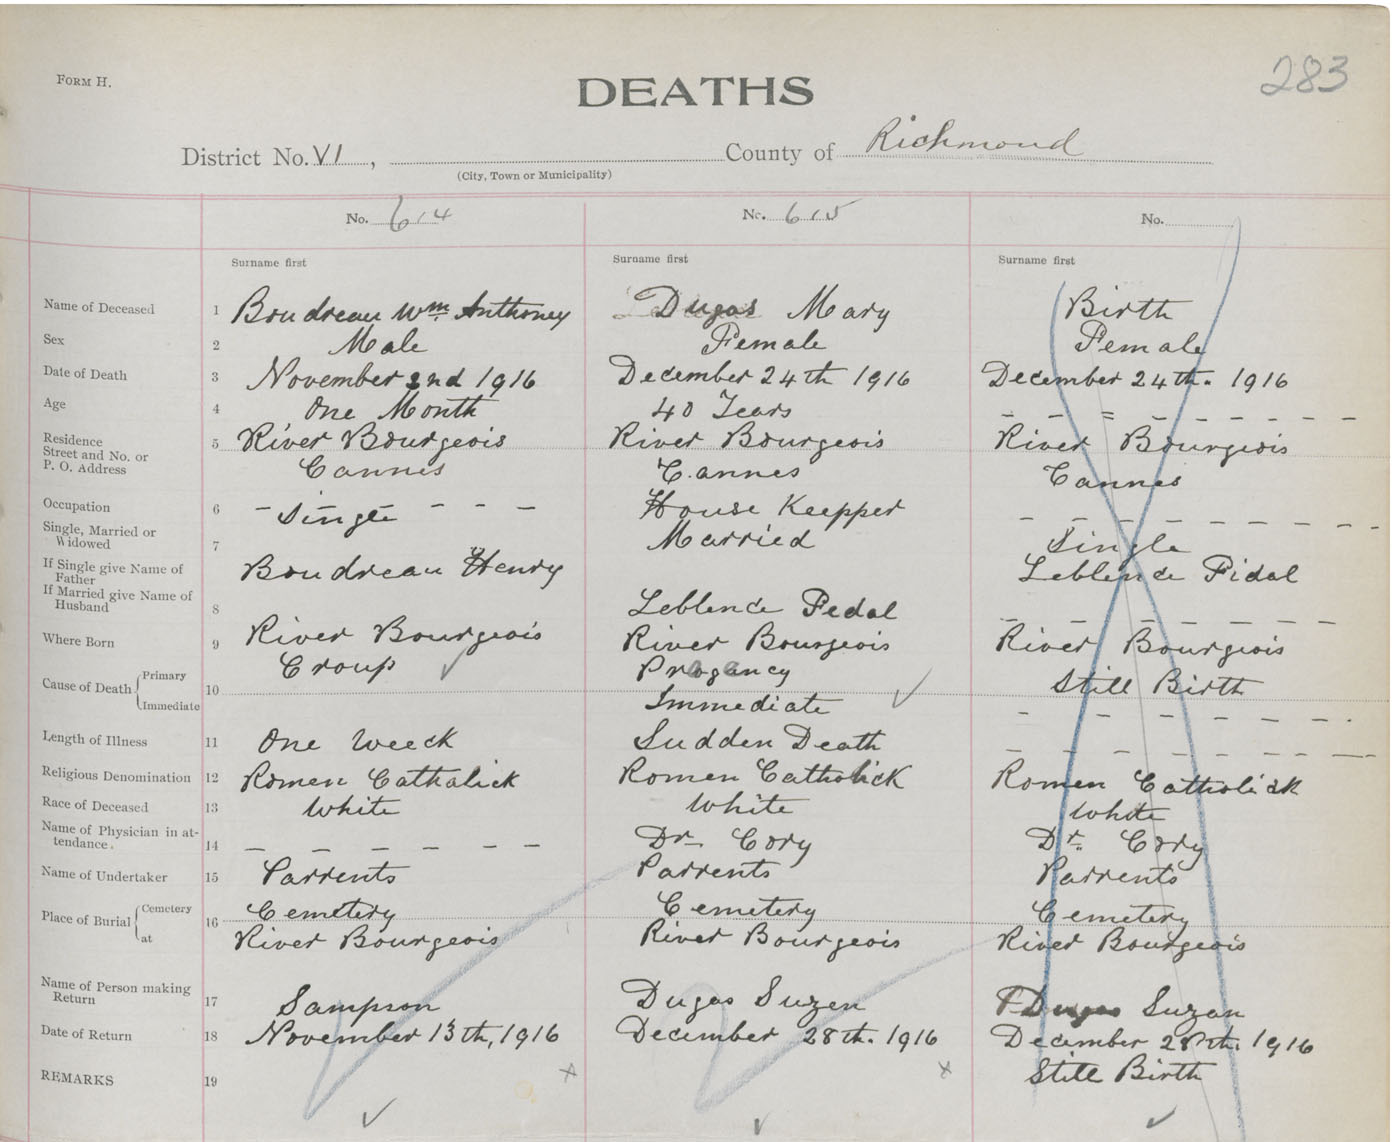 FORM H.
DEATHS
283
District No. VI, County of Richmond
(City, Town or Municipality)
No. 614 No. 615 No.
Surname first Surname first Surname first
Name of Deceased 1 Boudreau Wm Anthoney Dugas Mary Birth
Sex 2 Male Female Female
Date of Death 3 November 2nd 1916 December 24th 1916 December 24th. 1916
Age 4 One Month 40 Years - - = - - - - - -
Residence
Street and No. or
P. O. Address 5 River Bourgeois River Bourgeois River Bourgeois
Cannes Cannes Cannes
Occupation 6 - Single - - - House Keepper - - - - - - - - -
Single, Married or
Widowed 7 Married Single
If Single give Name of
Father Boudreau Henry Leblence Fidal
If Married give Name of
Husband 8 Leblence Fedal - - - - - - - - -
Where Born 9 River Bourgeois River Bourgeois River Bourgeois
Cause of Death Primary Croup Progancy Still Birth
10
Immediate Immediate - - - - - - - - .
Length of Illness 11 One Weeck Sudden Death - - - - - - - - -
Religious Denomination 12 Romen Cathalick Romen Catholick Romen Catholick
Race of Deceased 13 White White White
Name of Physician in at-
tendance. 14 - - - - - - Dr Cory Dr. Cory
Name of Undertaker 15 Parrents Parrents Parrents
Place of Burial Cemetery 16 Cemetery Cemetery Cemetery
at River Bourgeois River Bourgeois River Bourgeois
Name of Person making
Return 17 Sampson Dugas Suzen Dugas Suzan
Date of Return 18 November 13th, 1916 December 28th. 1916 December 28th. 1916
REMARKS 19 Still Birth